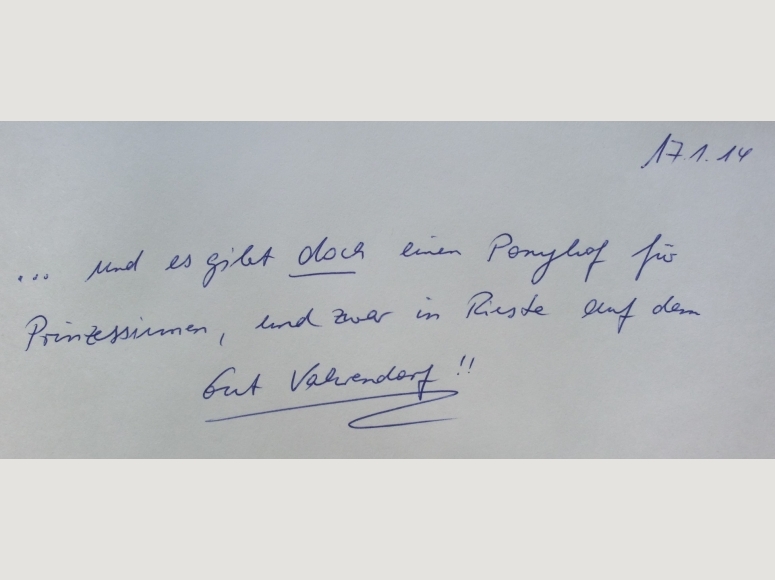 17.1.14
... und es gibt doch einen Ponyhof für
Prinzessinnen, und zwar in Rieste auf dem
Gut Vahrendorf!!